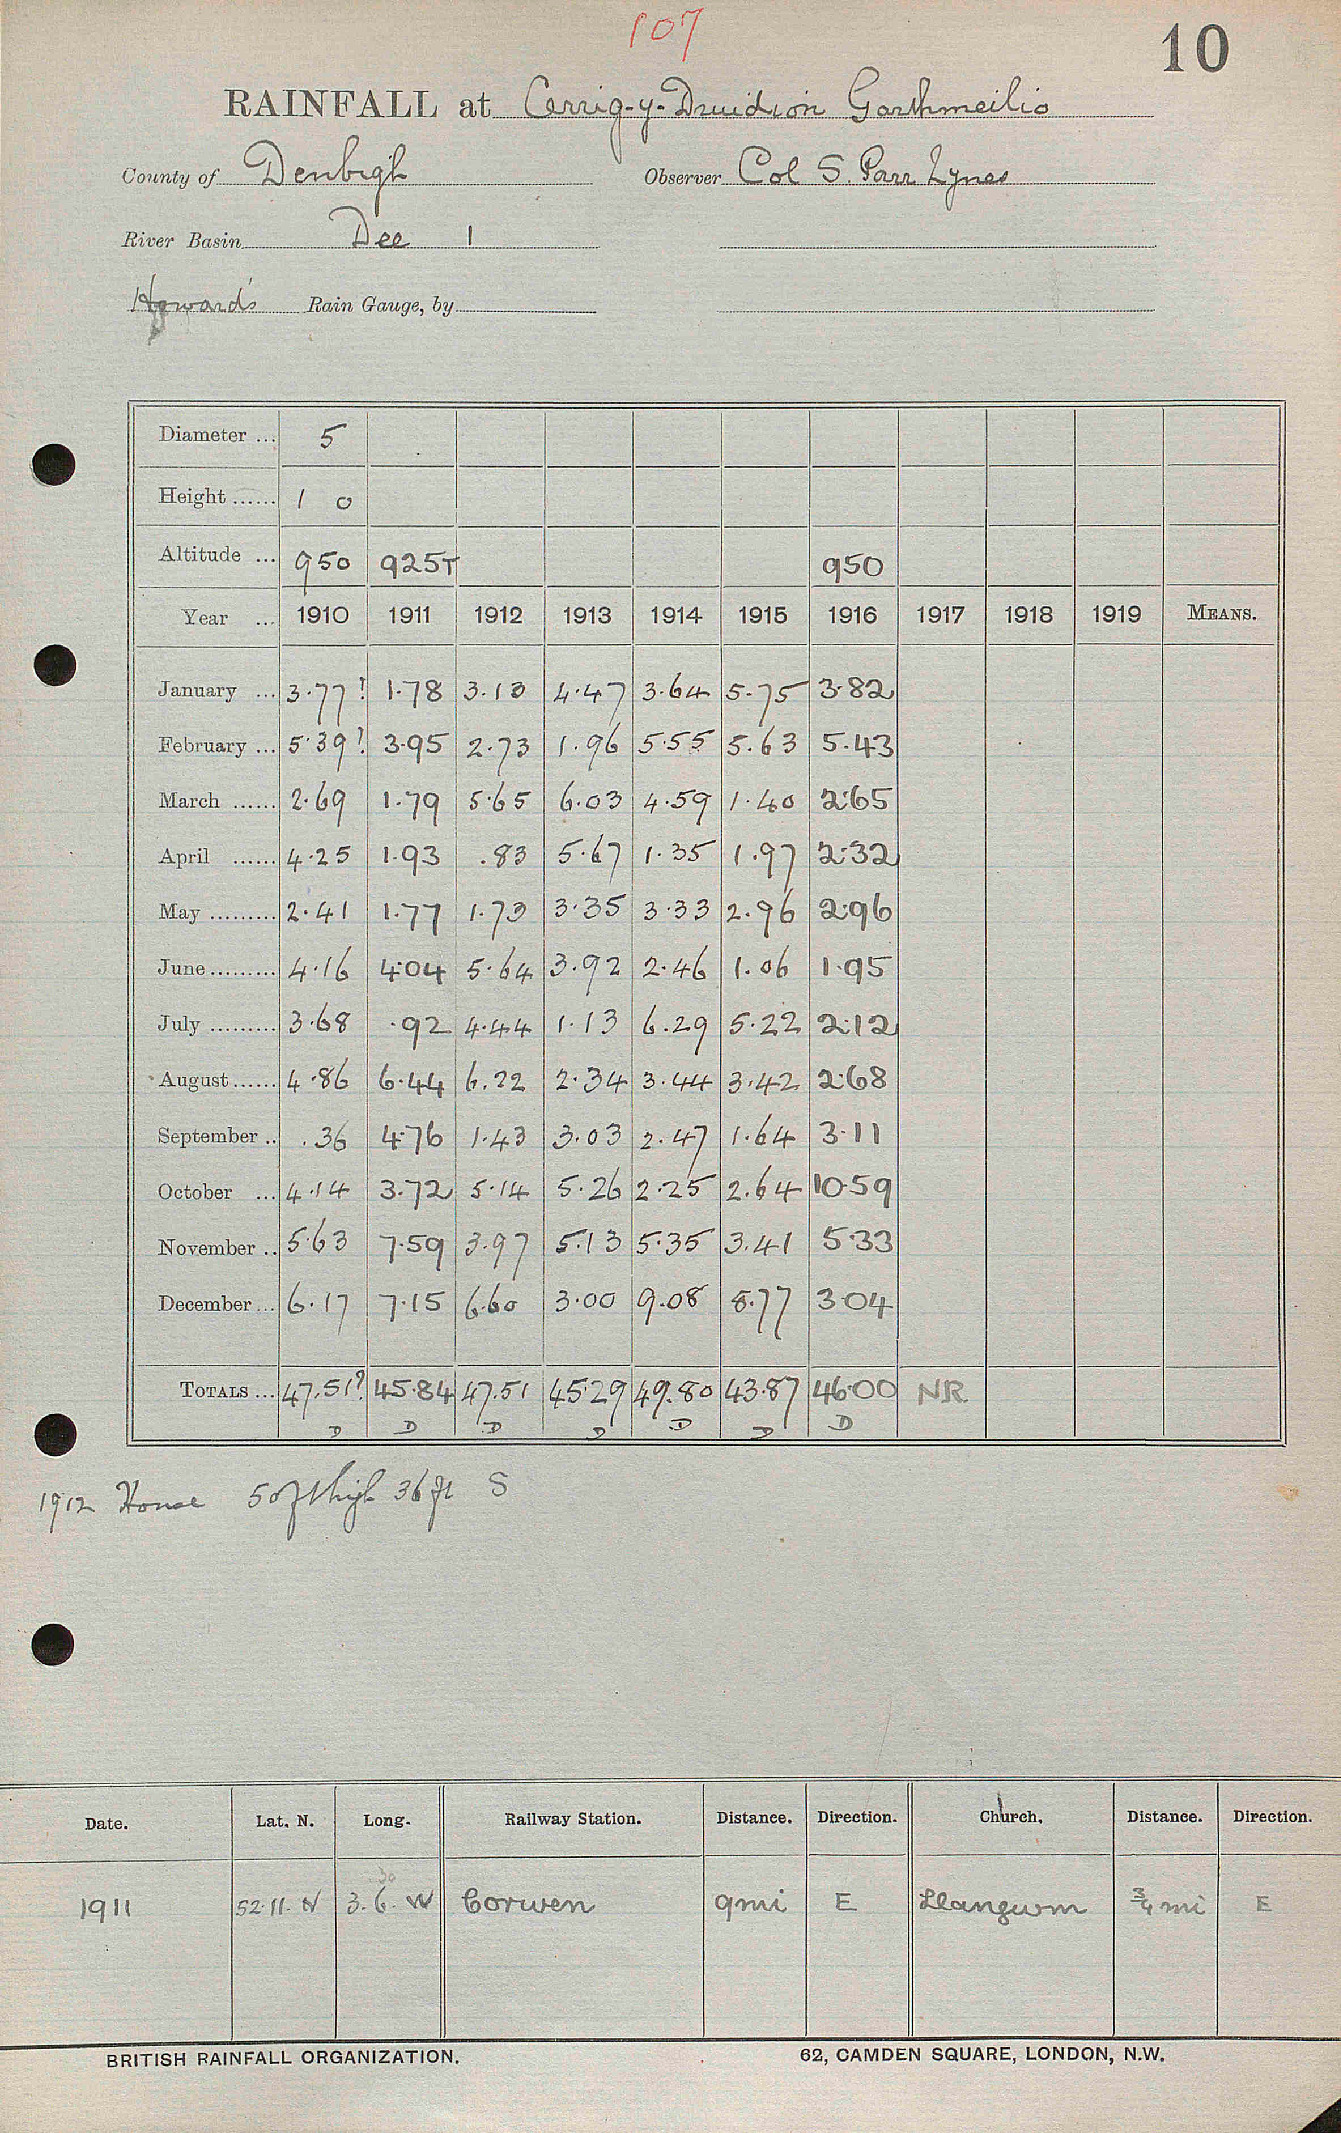 107
10
RAINFALL at Cerrig-y-Druidion Garthmeilio
County of Denbigh Observer Col S. Parr Lynes
River Basin Dee 1
Howard's Rain Gauge, by
Diameter ... 5
Height ...... 1 0
Altitude ... 950 925T 950
Year ... 1910 1911 1912 1913 1914 1915 1916 1917 1918 1919 MEANS.
January ... 3.77? 1.78 3.13 4.47 3.64 5.75 3.82
February ... 5.39? 3.95 2.73 1.96 5.55 5.63 5.43
March ...... 2.69 1.79 5.65 6.03 4.59 1.40 2.65
April ...... 4.25 1.93 .83 5.67 1.35 1.97 2.32
May ......... 2.41 1.77 1.73 3.35 3.33 2.96 2.96
June ......... 4.16 4.04 5.64 3.92 2.46 1.06 1.95
July ......... 3.68 .92 4.44 1.13 6.29 5.22 2.12
August ...... 4.86 6.44 6.22 2.34 3.44 3.42 2.68
September .. .36 4.76 1.43 3.03 2.47 1.64 3.11
October ... 4.14 3.72 5.14 5.26 2.25 2.64 10.59
November .. 5.63 7.59 3.97 5.13 5.35 3.41 5.33
December ... 6.17 7.15 6.60 3.00 9.08 8.77 3.04
TOTALS ... 47.51? 45.84 47.51 45.29 49.80 43.87 46.00 NR
D D D D D D D
1912 House 50ft high 36 ft S
Date. Lat. N. Long. Railway Station. Distance. Direction. Church. Distance. Direction.
30
1911 52.11. N 3.6. W Corwen 9mi E Llangwm ¾ mi E
BRITISH RAINFALL ORGANIZATION. 62, CAMDEN SQUARE, LONDON, N.W.